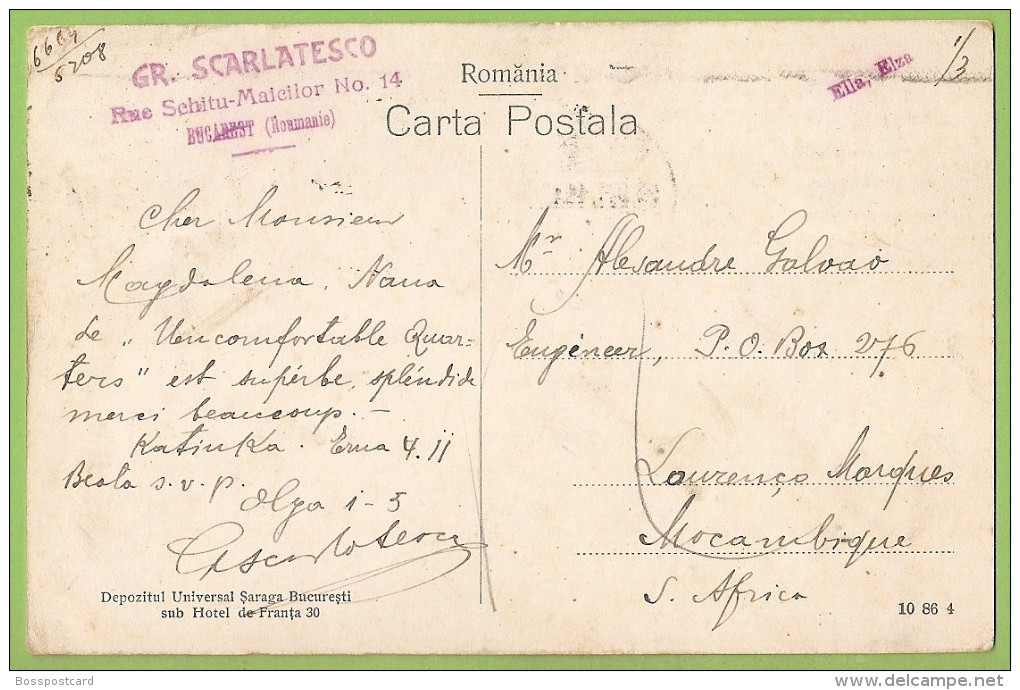 6664
5208
GR. SCARLATESCO
Rue Schitu-Maicilor No. 14
BUCAREST (Roumanie)
România
Carta Postala
Ella, Elza
1/3
Cher Monsieur
Magdalena, Nana
de „Uncomfortable Quar-
ters" est supérbe, spléndide
merci beaucoup. —
Katinka. Erna 4.11
Beata s.v.p.
Olga 1-5
GrScarlatescu
Mr Alesandre Galvao
Engéneer, P.O. Box 276
Lourenço Marques
Mocambique
S. Africa
Depozitul Universal Şaraga Bucureşti
sub Hotel de Franţa 30
10 86 4
Bosspostcard
www.delcampe.net